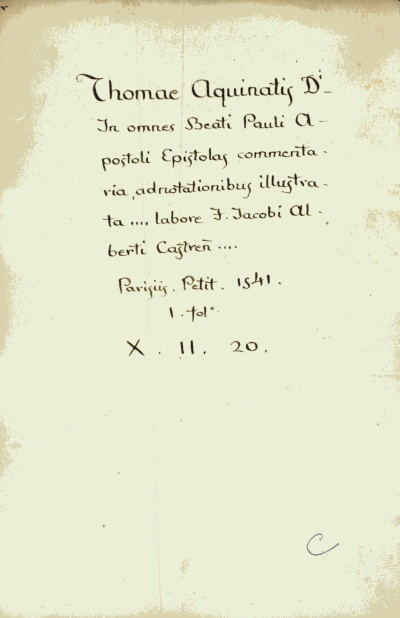 Thomae Aquinatis Dⁱ-
In omnes Beati Pauli A-
postoli Epistolas commenta-
ria, adnotationibus illustra-
ta .... labore F. Jacobi Al-
berti Castreñ ....
Parisiis. Petit. 1541.
1. folº
X. 11. 20.
C